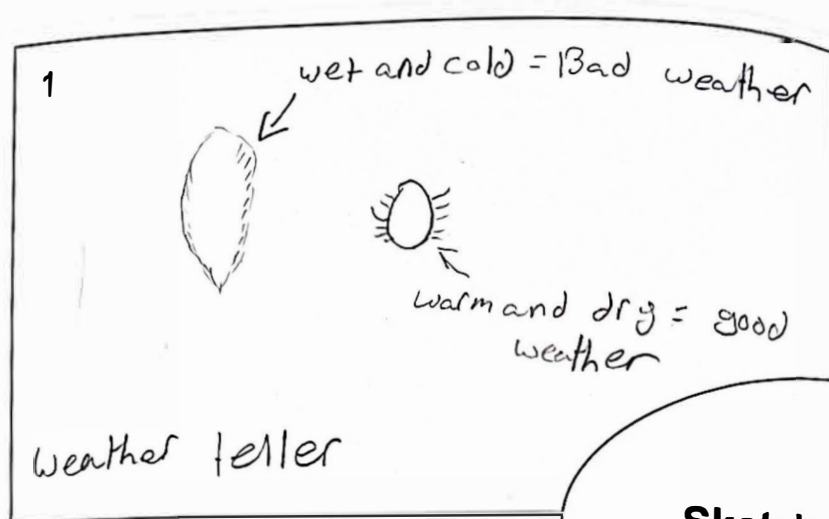 1
wet and cold = Bad weather
warm and dry = good
weather
weather teller